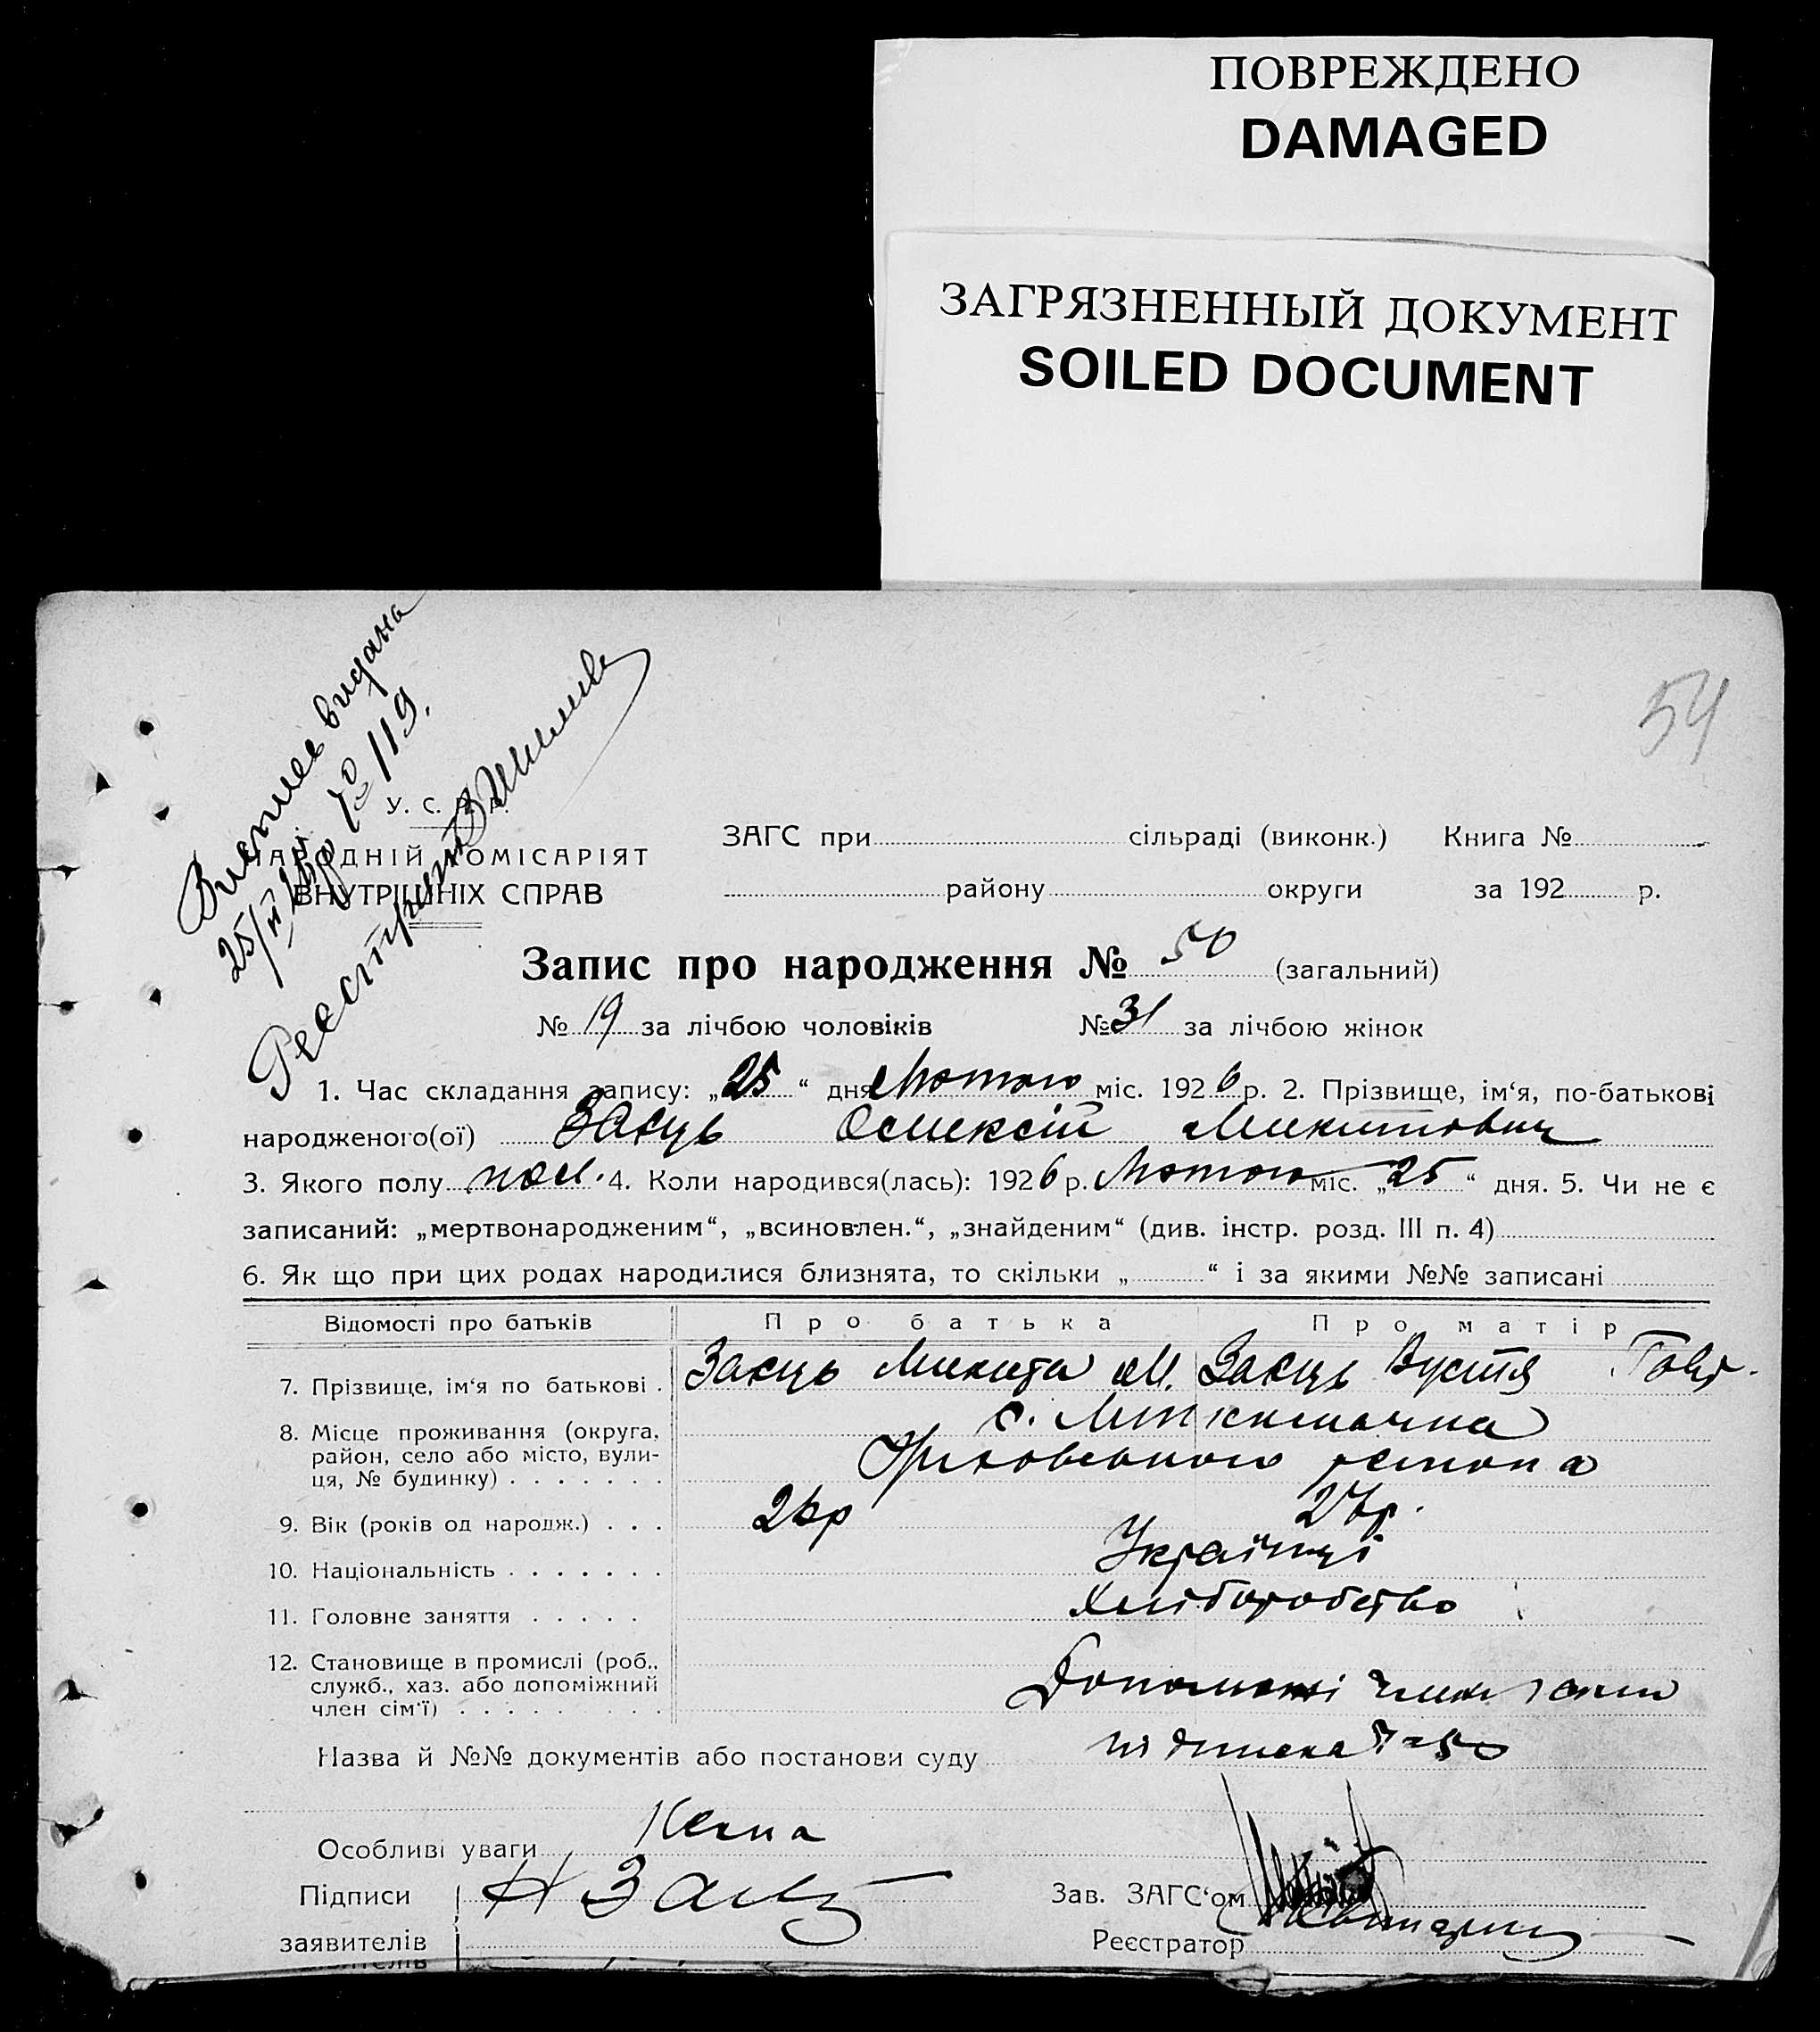 ПОВРЕЖДЕНО
DAMAGED
ЗАГРЯЗНЕННЫЙ ДОКУМЕНТ
SOILED DOCUMENT
54
видана
У. С. Р. Р.
НАРОДНІЙ КОМІСАРІЯТ
ВНУТРІШНІХ СПРАВ
ЗАГС при сільраді (виконк.) Книга №
району округи за 192 р.
Запис про народження № 50 (загальний)
№ 19 за лічбою чоловіків № 31 за лічбою жінок
1. Час складання запису: „25“ дня Лютого міс. 1926 р. 2. Прізвище, ім‘я, по-батькові
народженого(ої) Заєць Олексій Микитович
3. Якого полу чол. 4. Коли народився(лась): 1926 р. Лютого міс. „25“ дня. 5. Чи не є
записаний: „мертвонародженим“, „всиновлен.“, „знайденим“ (див. інстр. розд. III п. 4)
6. Як що при цих родах народилися близнята, то скільки „ “ і за якими №№ записані
Відомості про батьків Про батька Про матір
7. Прізвище, ім‘я по батькові . Заєць Микита М. Заєць Вустя
8. Місце проживання (округа, с.
район, село або місто, вули-
ця, № будинку) . . . . . . .
9. Вік (років од народж.) . . . 26р 27р.
10. Національність . . . . . . . Українці
11. Головне заняття . . . . . Хліборобство
12. Становище в промислі (роб.,
служб., хаз. або допоміжний
член сім‘ї) . . . . . . . . . Допоможні член
Назва й №№ документів або постанови суду підписка № 50
Особливі уваги Нема
Підписи Зав. ЗАГС‘ом
заявителів Реєстратор